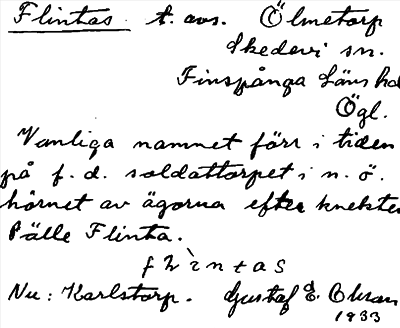 Flintas t. avs. Ölmetorp
Skedevi sn.
Finspånga Läns
Ögl.
Vanliga namnet förr i tiden
på f. d. soldattorpet i n. ö.
hörnet av ägorna efter
Pälle Flinta.
flintas
Nu: Karlstorp. Gustaf E.
1933